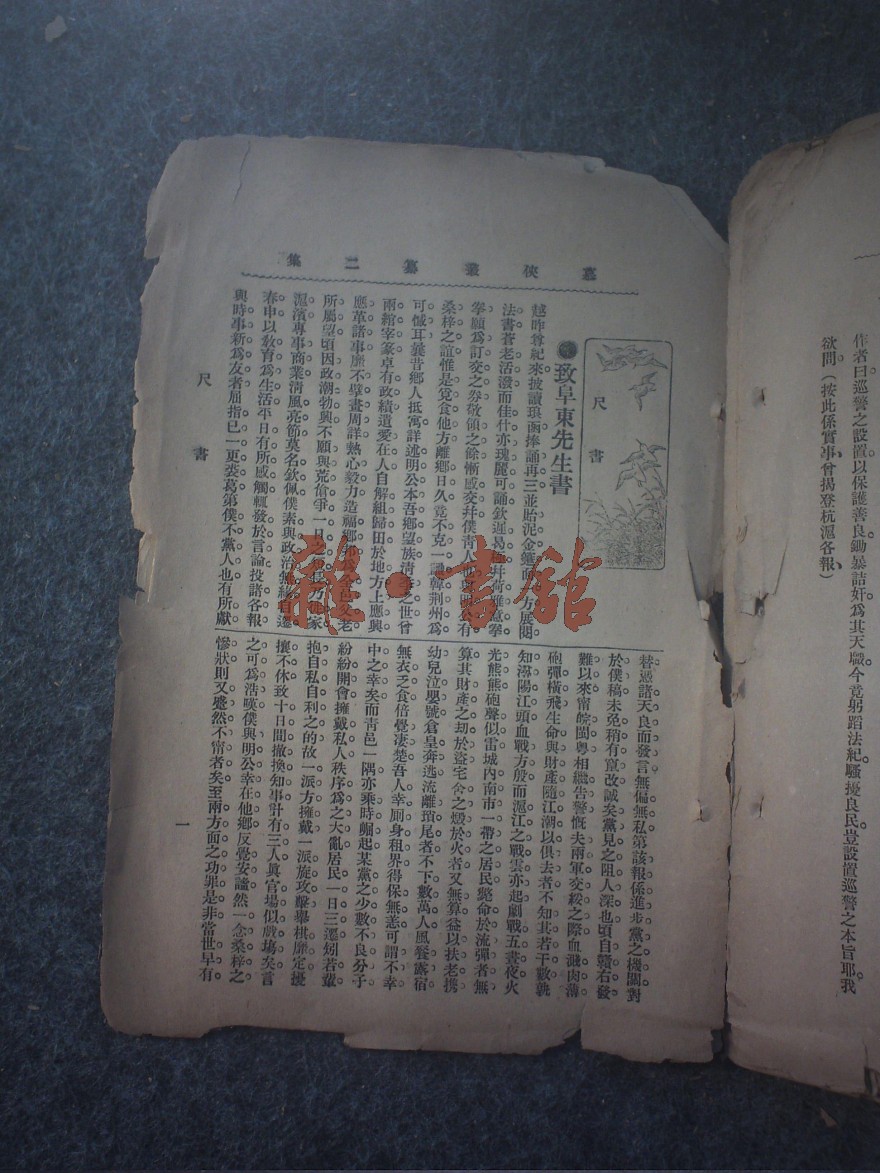 作者曰巡警之設置以保護善良鋤暴詰奸爲其天職今竟躬蹈法紀騷擾良民豈設置巡警之本旨耶我
欲問（按此係實事曾揭登杭滬各報）
俠叢纂二集
尺書
致阜東先生書
越昨尊紀來披讀琅函捧誦再三並貽泥金箑面一方展閱
法書蒼老活潑而佳什亦瑰麗可誦欽遲曷極拜荷雅意拳
拳願爲訂交之券敬領之餘慚感交幷僕青人也與明公有
桑梓之誼惟是覓食他方離鄉日久竟不克一識韓荆州爲
可慽耳曩昔鄉人抵寓詳述明公本吾鄉望族淸季之世曾
兩綰宰篆卓有政績遺愛在人自解組歸田於地方上應興
應革諸事靡不擘畫周詳熱心毅力造福鄉邦爲全邑父老
所屬望頃因政潮勃興不願與荒傖爭一日之短長方挂家
滬濱專事商業淸風亮節莫名欽佩僕素與政治無緣自遷
春申以敎育爲生活平日有所感觸輒發於言論投諸各報
與時事新爲友者屈指已一更裘葛第僕不黨人也有所獻
替憑諸天良而發言無偏無私第該報係進步黨之機關對
於僕稿未免稍有竄改誠矣黨見之阻人深也頃自贛右發
難以來甯皖閩粤相繼告警慨夫兩軍交綏之際血濺肉薄
砲彈橫飛生命與財產隨江潮以俱去者不知其若干數孰
知潯陽江頭血戰方殷而滬江之戰雲亦起劇戰五晝夜火
光熊熊砲聲似雷城內南市一帶之居民斃命於流彈者無
算其財產之刧於盜宅舍之燬於火者又無算益以扶老携
幼兒泣嬰號倉皇奔逃流離瑣尾者不下數萬人風餐露宿
無衣乏食倍覺凄楚吾人幸厠身租界得保無恙可謂不幸
中之幸矣而靑邑一隅亦乘時崛起某黨之少數不良分子
紛紛開會擁戴私人秩序爲之大亂居民一日三驚矧若輩
抱自私自利之的故一派方擁戴一派旋攻擊舉棋靡定擾
攘不休致十日間撤換知事計有三人眞官塲似戲塲矣言
之可爲浩嘆僕與明公幸在他鄉反覺安謐然一念桑梓之
慘狀則又蹙然不甯者矣至兩方面之功罪是非當世早有
尺書
一
雜·書館